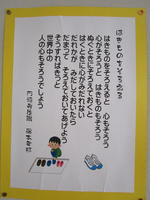 はきものをそろえる
はきものをそろえると 心もそろう
心がそろうと はきものもそろう
ぬぐときに そろえておくと
はくときに 心がみだれない
だれかが みだしておいたら
だまって そろえておいてあげよう
そうすればきっと
世界中の
人の心もそろうでしょう